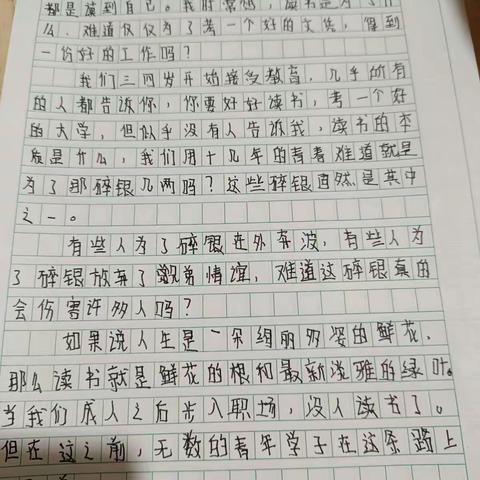 都是读到自己。我时常想，读书是为了什
么，难道仅仅为了考一个好的文凭，得到
一份好的工作吗？
我们三四岁开始接受教育，几乎所有
的人都告诉你，你要好好读书，考一个好
的大学，但似乎没有人告诉我，读书的本
质是什么，我们用十几年的青春难道就是
为了那碎银几两吗？这些碎银固然是其中
之一。
有些人为了碎银在外奔波，有些人为
了碎银放弃了兄弟情谊，难道这碎银真的
会伤害许多人吗？
如果说人生是一朵绚丽多姿的鲜花，
那么读书就是鲜花的根和最新淡雅的绿叶。
当我们成人之后步入职场，没人读书了。
但在这之前，无数的青年学子在这条路上